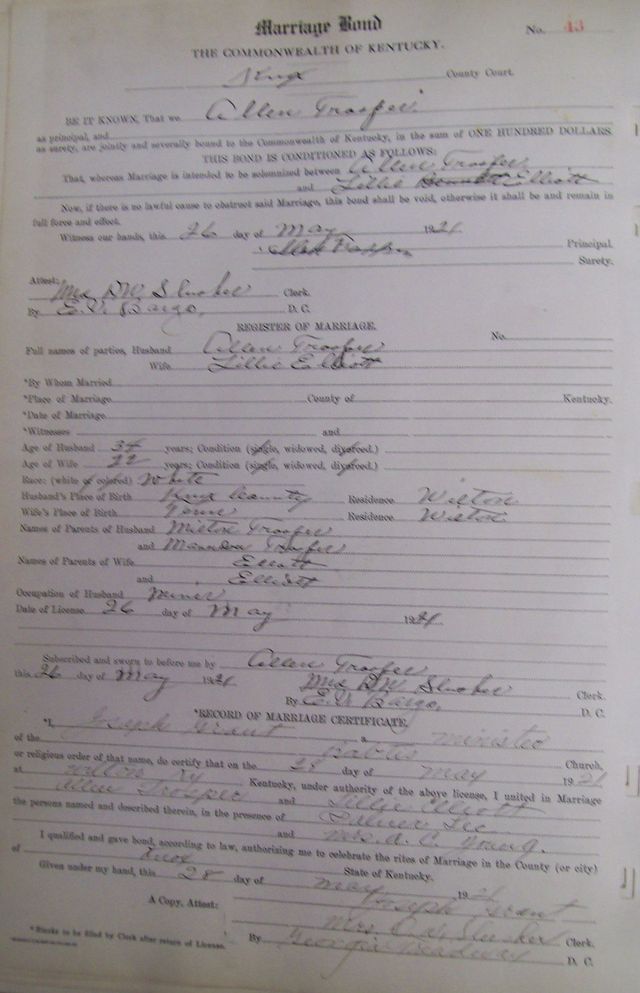 Marriage Bond
No. 43
THE COMMONWEALTH OF KENTUCKY.
Knox County Court.
BE IT KNOWN, That we Allen Trosper
as principal, and
as surety, are jointly and severally bound to the Commonwealth of Kentucky, in the sum of ONE HUNDRED DOLLARS.
THIS BOND IS CONDITIONED AS FOLLOWS:
That, whereas Marriage is intended to be solemnized between Allen Trosper
and Lillie Elliott
Now, if there is no lawful cause to obstruct said Marriage, this bond shall be void, otherwise it shall be and remain in
full force and effect.
Witness our hands, this 26 day of May 1921
Principal.
Surety.
Attest:
Mrs. D.W. Slusher Clerk.
By E.V. Bargo, D. C.
REGISTER OF MARRIAGE.
No.
Full names of parties, Husband Allen Trosper
Wife Lillie Elliott
*By Whom Married
*Place of Marriage County of Kentucky.
*Date of Marriage
*Witnesses and
Age of Husband 34 years; Condition (single, widowed, divorced.)
Age of Wife 22 years; Condition (single, widowed, divorced.)
Race: (white or colored) White
Husband's Place of Birth Knox County Residence Wilton
Wife's Place of Birth Tenn Residence Wilton
Names of Parents of Husband Milton Trosper
and Trosper
Names of Parents of Wife Elliott
and Elliott
Occupation of Husband Miner
Date of License 26 day of May 1921
Subscribed and sworn to before me by Allen Trosper
this 26 day of May 1921 Mrs D.W. Slusher Clerk.
By E.V. Bargo, D. C.
*RECORD OF MARRIAGE CERTIFICATE.
*I, Joseph Grant a minister
of the Babtis Church,
or religious order of that name, do certify that on the 28 day of May 1921
at Wilton Ky Kentucky, under authority of the above license, I united in Marriage
Allen Trosper and Lillie Elliott
the persons named and described therein, in the presence of Palmer Lee
and Mrs. A. C. Young.
I qualified and gave bond, according to law, authorizing me to celebrate the rites of Marriage in the County (or city)
of Knox State of Kentucky.
Given under my hand, this 28 day of May 1921
Joseph Grant
A Copy, Attest:
Mrs. D.W. Slusher Clerk.
By Georgia D. C.
*Blanks to be filled by Clerk after return of License.